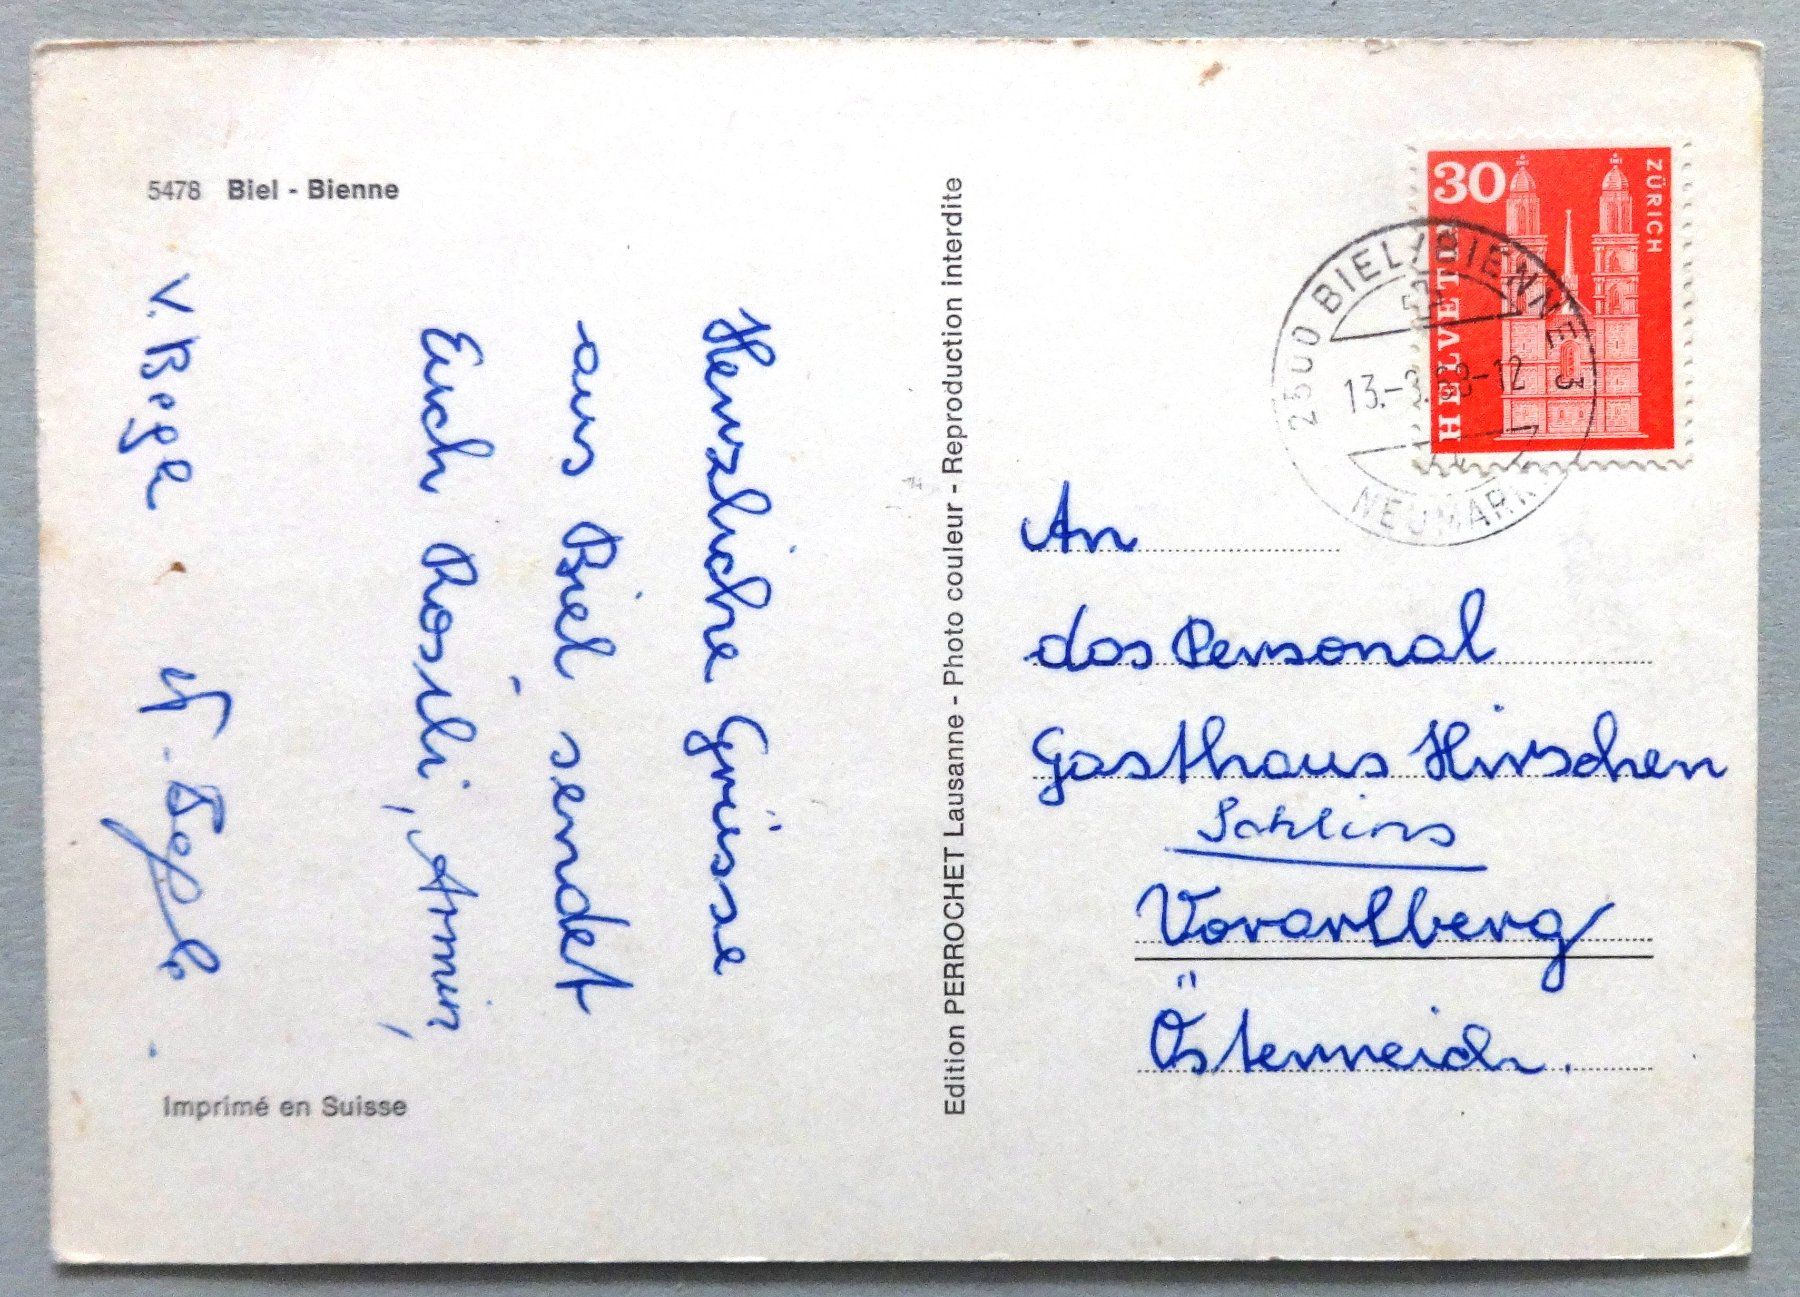 5478 Biel - Bienne
Herzliche Grüsse
aus Biel sendet
Euch Rösli, Armin,
Imprimé en Suisse
Edition PERROCHET Lausanne - Photo couleur - Reproduction interdite
30
ZÜRICH
HELVETIA
2500 BIEL/BIENNE 3
13.-3.68-12
NEUMARKT
An
das Personal
Gasthaus Hirschen
Schlins
Vorarlberg
Österreich.